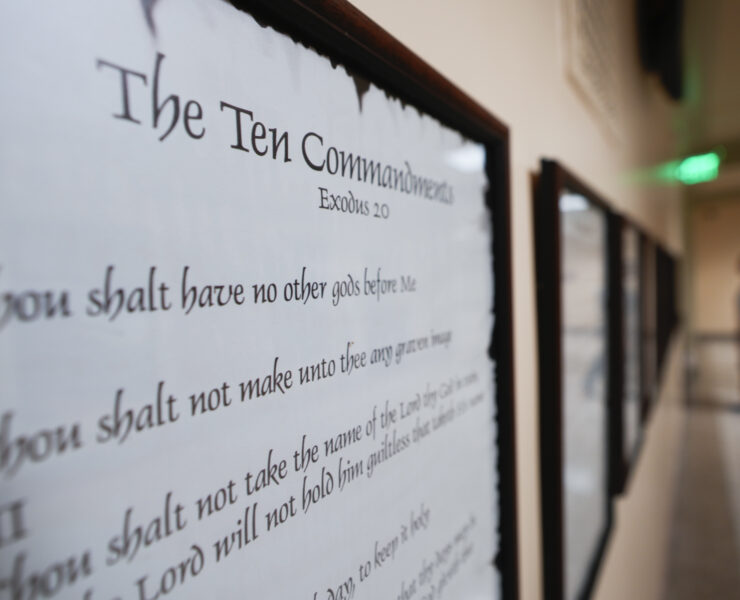 The Ten Commandments
Exodus 20
hou shalt have no other gods before Me
hou shalt not make unto thee any graven image
II
hou shalt not take the name of the Lord thy God in vain
Lord will not hold him guiltless that taketh His name
day, to keep it holy
that thy days may be